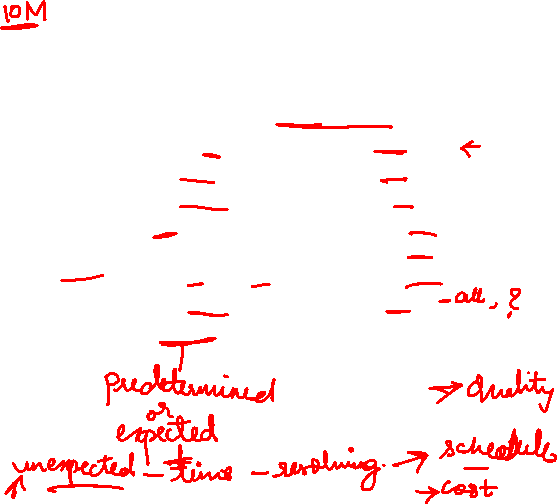 10M
- all, ?
Predetermined
or
expected
→ Quality
unexpected - time - resolving. → schedule
→ cost